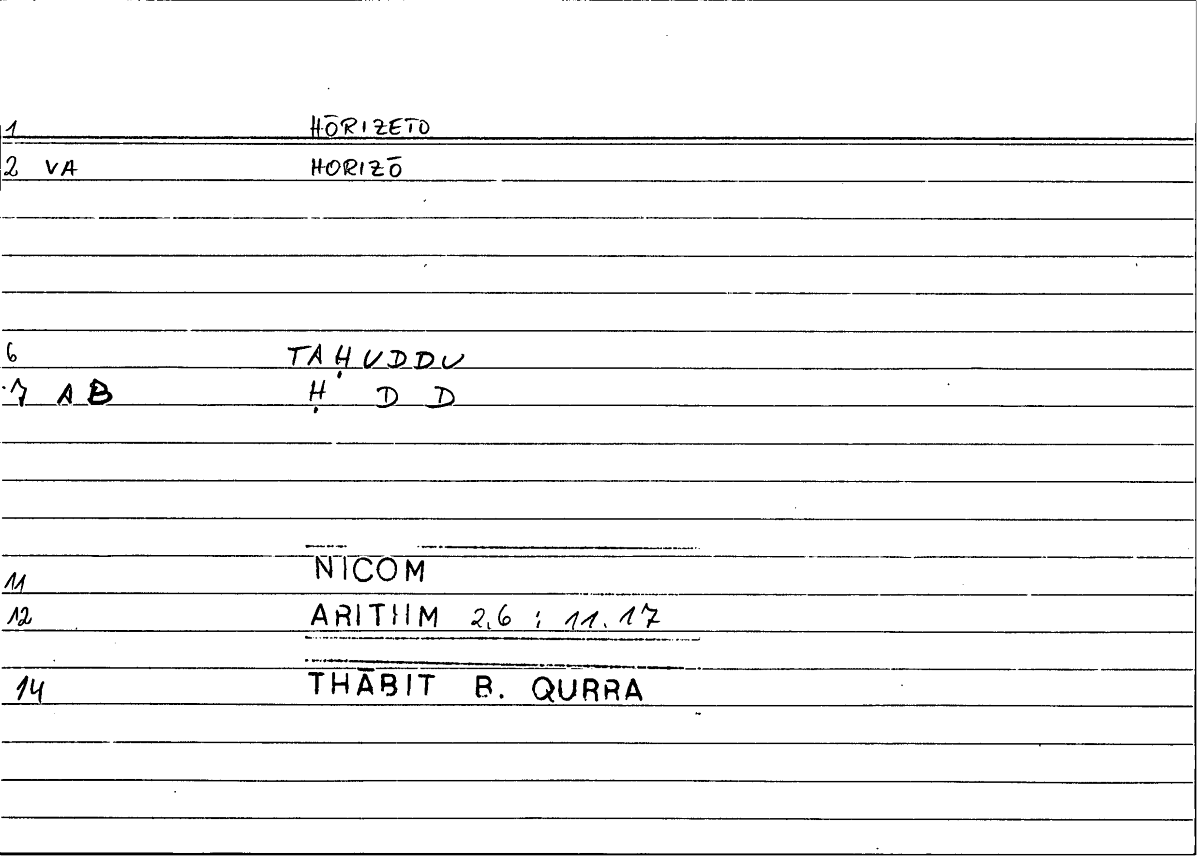 1 HŌRIZETO
2 VA HORIZŌ
6 TAḤUDDU
7 AB Ḥ D D
11 NICOM
12 ARITHM 2,6 ; 11.17
14 THĀBIT B. QURRA